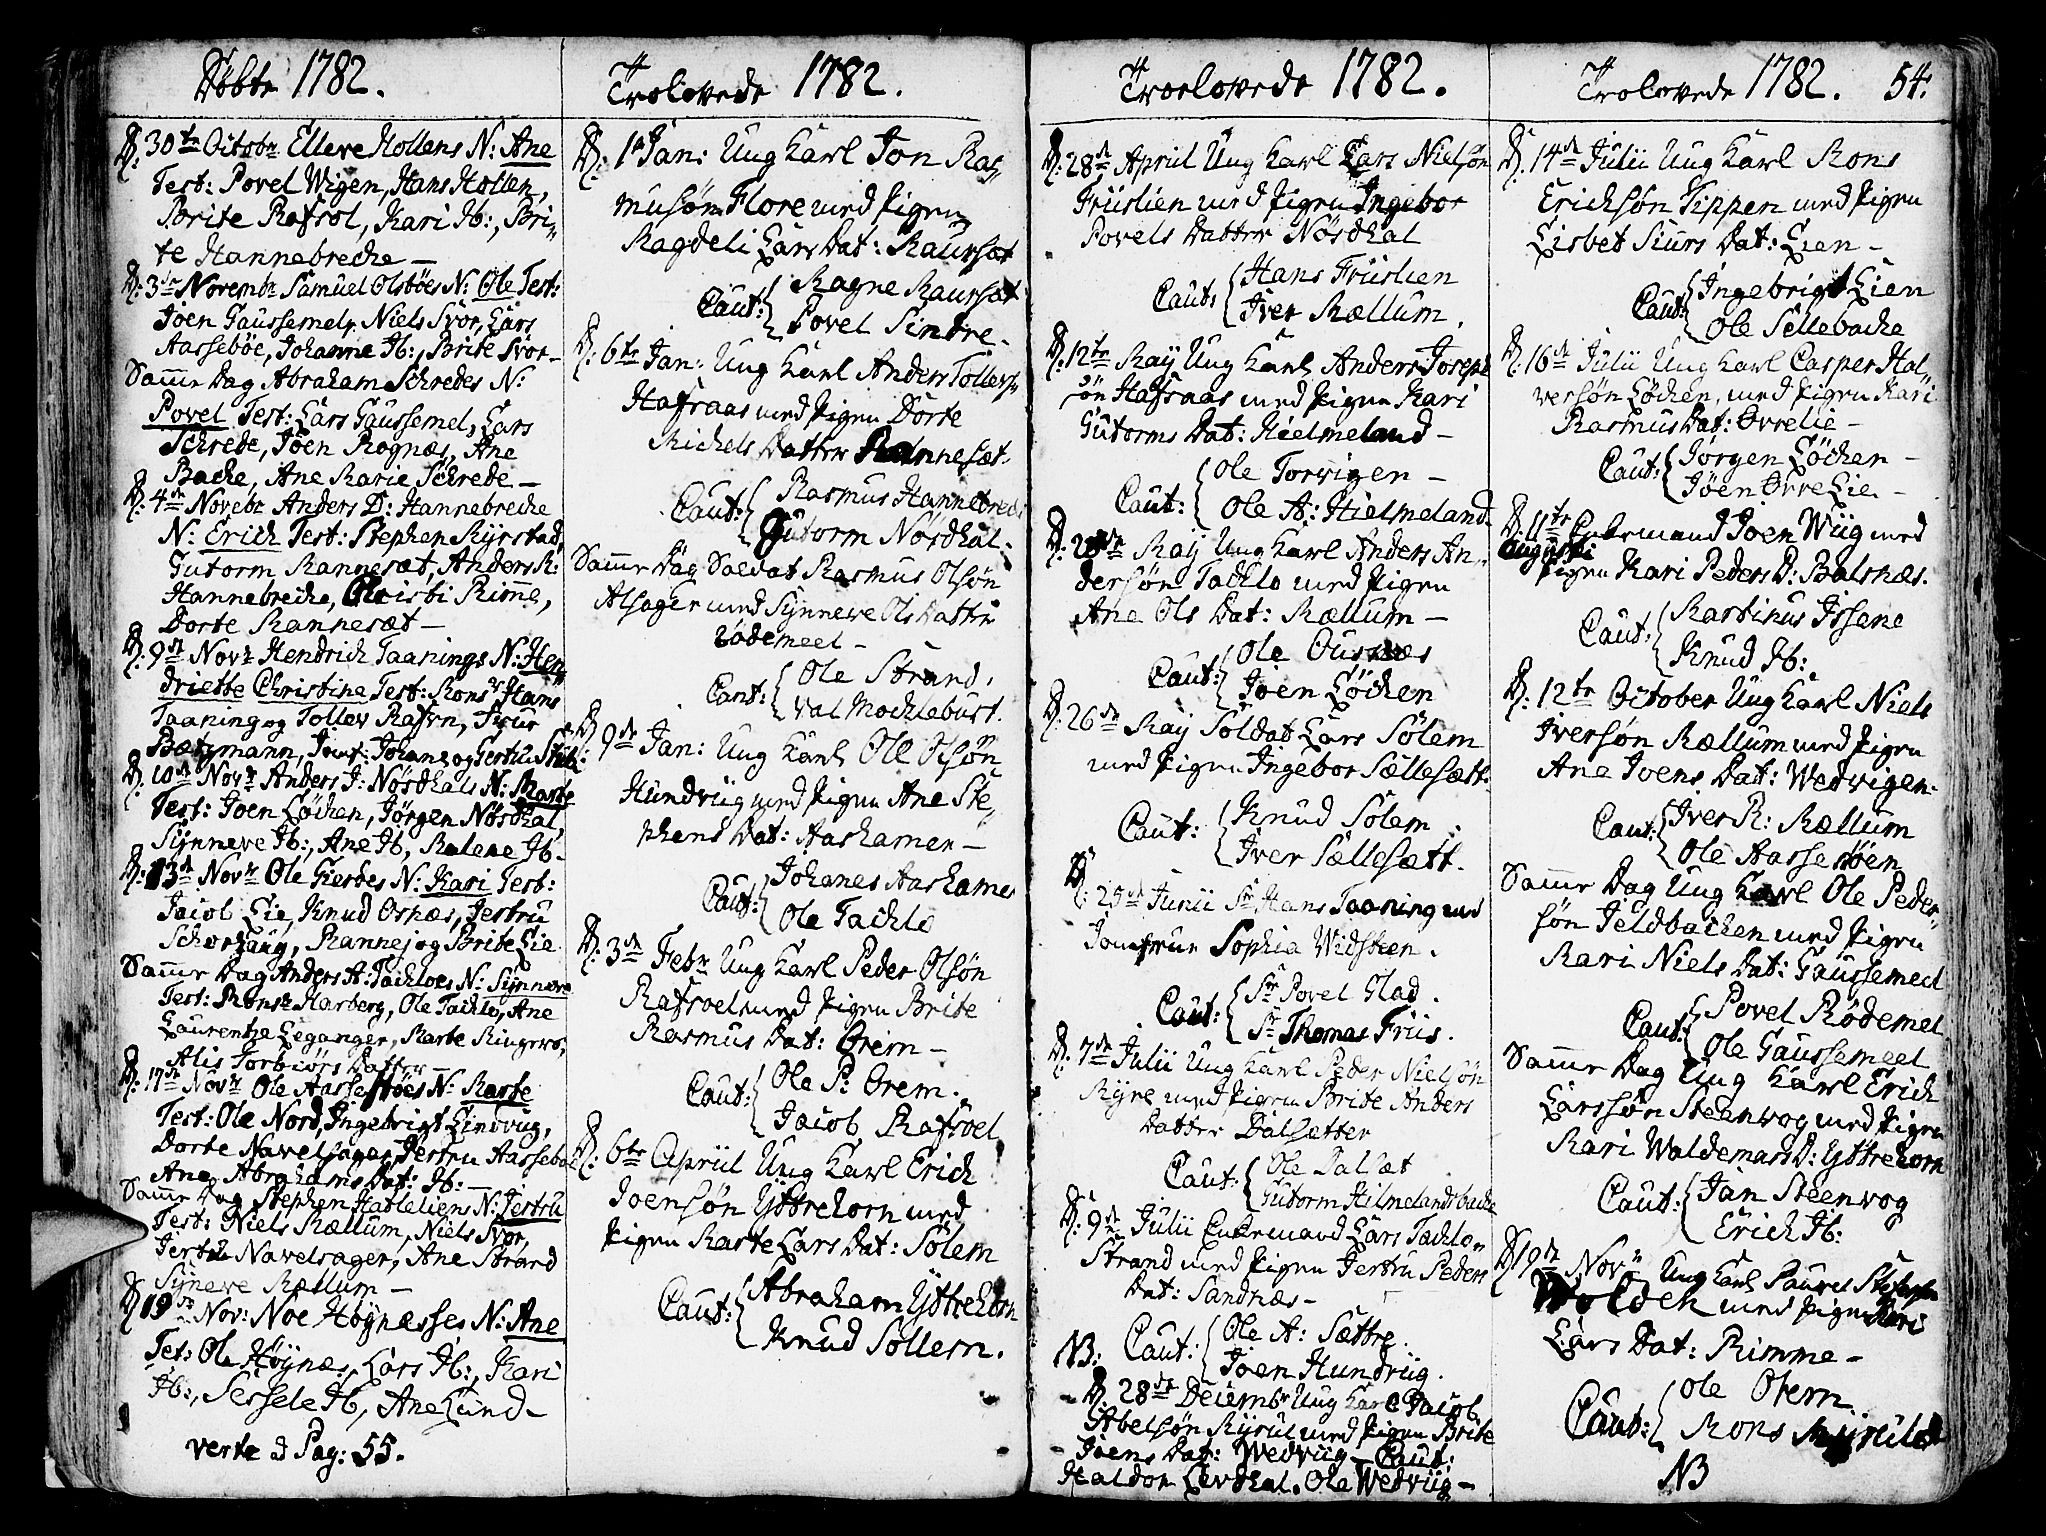 Døbte 1782.
D: 30te Octobr Ellere Hollens N: Ane
Test: Povel Wigen, Hans Hollen,
Brite Rafsol, Kari Ib:, Bri-
te Hannebreche —
D: 3de Novembr Samuel Olsböes N: Ole Test:
Joen Gaussemel, Niels Svor, Lars
Aasseböe, Johanne Ib:, Brite Svor —
Samme Dag Abraham Schredes N:
Povel Test: Lars Gaussemel, Lars
Schrede, Joen Rognæs, Ane
Bache, Ane Marie Schrede —
D: 4de Novebr Anders D: Hannebreche
N: Erich Test: Stephen Myrstad,
Gutorm Mannesæt, Anders R:
Hannebreche, Christi Rimme,
Dorte Mannesæt —
D: 9de Novr Hendrich Taanings N: Hen-
driette Christine Test: Monsr Hans
Taaning og Tollev Rafvn, Frue
Bætzmann, Jomf: Johane og Gertru
D: 10de Novr Anders J: Nösdhals N: Marte
Test: Joen Löchen, Jörgen Nösdhal,
Synneve Ib:, Ane Ib, Malene Ib —
D: 13de Novr Ole Gierdes N: Kari Test:
Jacob Lie, Knud Osnæs, Jertru
Schorhaug, Rannej og Brite Lie
Samme Dag Anders A: Tachloes N: Synneve
Test: Monsr Harberg, Ole Tachlo, Ane
Laurentze Leganger, Marte Ringeros,
Alis Torbiörs Datter —
D: 17de Novr Ole Aassestöes N: Marte
Test: Ole Nord, Ingebrigt Lindviig,
Dorte Navelsager, Jertru Aasseböe
Ane Abrahams Dat: Ib: —
Samme Dag Stephen Hatleliens N: Jertru
Test: Niels Mællum, Niels Svor,
Jertru Navelsager, Ane Strand
Syneve Mællum —
D 19de Nov: Noe Höynæsses N: Ane
Tet: Ole Höynæs, Lars Ib:, Kari
Ib:, Sessele Ib, Ane Lund —
verte d Pag: 55.

Trolovede 1782.
D: 1te Jan: Ung Karl Jon Ras-
musøn Flore med Pigen
Ragdeli Lars Dat: Raursæt
Caut: Magne Raursæt
Povel Sindre —
D: 6te Jan: Ung Karl Anders Tollevs:
Hafraas med Pigen Dorte
Michels Datter Mannesæt.
Caut: Rasmus Hannebreche
Gutorm Nösdhal.
Samme Dag Soldat Rasmus Olsön
Alsager med Synneve Ols Datter
Rödemeel —
Caut: Ole Strand.
Val Mochlebust.
D: 9de Jan: Ung Karl Ole Olsön
Hundviig med Pigen Ane Ste-
phens Dat: Aashamer —
Caut: Johanes Aashamer
Ole Tachlo
D: 3de Febr Ung Karl Peder Olsön
Rafsoel med Pigen Brite
Rasmus Dat: Orem —
Caut: Ole P: Orem.
Jacob Rafsoel
D: 6te Apriil Ung Karl Erich
Joensön Yttrehorn med
Pigen Marte Lars Dat: Sölem
Caut: Abraham Yttrehorn
Knud Söllem.

Troelovede 1782.
D: 28de Apriil Ung Karl Lars Nielsøn
Friislien med Pigen Ingebor
Povels Datter Nösdhal
Caut: Hans Friislien
Iver Mællum.
D: 12te May Ung Karl Anders Joseph-
sön Hafraas med Pigen Kari
Gutorms Dat: Hielmeland —
Caut: Ole Torvigen —
Ole A: Hielmeland.
D: 20de May Ung Karl Anders An-
dersøn Tachlo med Pigen
Ane Ols Dat: Mællum —
Caut: Ole Ousnæs
Joen Löchen
D: 26de May Soldat Lars Sölem
med Pigen Ingebor Sællesætt.
Caut: Knud Sölem.
Iver Sællesætt.
D: 25de Junii Sr Hans Taaning med
Jomfrue Sophia Widsteen.
Caut: Sr Povel Glad.
Sr Thomas Friis.
D: 7de Julii Ung Karl Peder Nielsön
Myre med Pigen Brite Anders
Datter Dalsætter
Caut: Ole Dalsæt
Gutorm Hilmelandsbache
D: 9de Julii Enkemand Lars Tachlo-
Strand med Pigen Jertru Peders
Dat: Sandnæs —
Caut: Ole A: Sættre.
Joen Hundviig.
NB: D: 28de Decembr Ung Karl Jacob
Abelsön Myrul med Pigen Brite
Joens Dat: Wedviig — Caut:
Haldor Levdhal. Ole Wedviig —

Trolovede 1782. 54.
D: 14de Julii Ung Karl Mons
Ericksøn Tippen med Pigen
Lisbet Siurs Dat: Lien —
Caut: Ingebrigt Lien
Ole Sellebache
D: 16de Julii Ung Karl Casper Hal-
versøn Löchen, med Pigen Kari
Rasmus Dat: Ovrelie —
Caut: Jörgen Löchen —
Joen Ovre Lie. —
D. 11te Augusti Enkemand Joen Wiig med
Pigen Kari Peders D: Balsnæs.
Caut: Martinus Issene
Knud Ib:
D: 12te October Ung Karl Niels
Iversön Mællum med Pigen
Ane Joens Dat: Wedvigen.
Caut: Iver R: Mællum
Ole Aassestöen
Samme Dag Ung Karl Ole Peder-
søn Jeldbachen med Pigen
Mari Niels Dat: Gaussemeel
Caut: Povel Rödemel
Ole Gaussemeel
Samme Dag Ung Karl Erich
Larssøn Steenvog med Pigen
Kari Waldemars D: Yttrehorn
Caut: Jan Steenvog
Erich Ib:
D 19de Novr Ung Karl
Wolden med Pigen Kari
Lars Dat: Rimme —
Caut: Ole Otern
Mons
NB